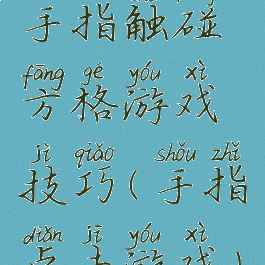 手指触碰
fāng gé yóu xì
方格游戏
jì qiǎo shǒu zhǐ
技巧(手指
diǎn jī yóu xì
点击游戏)